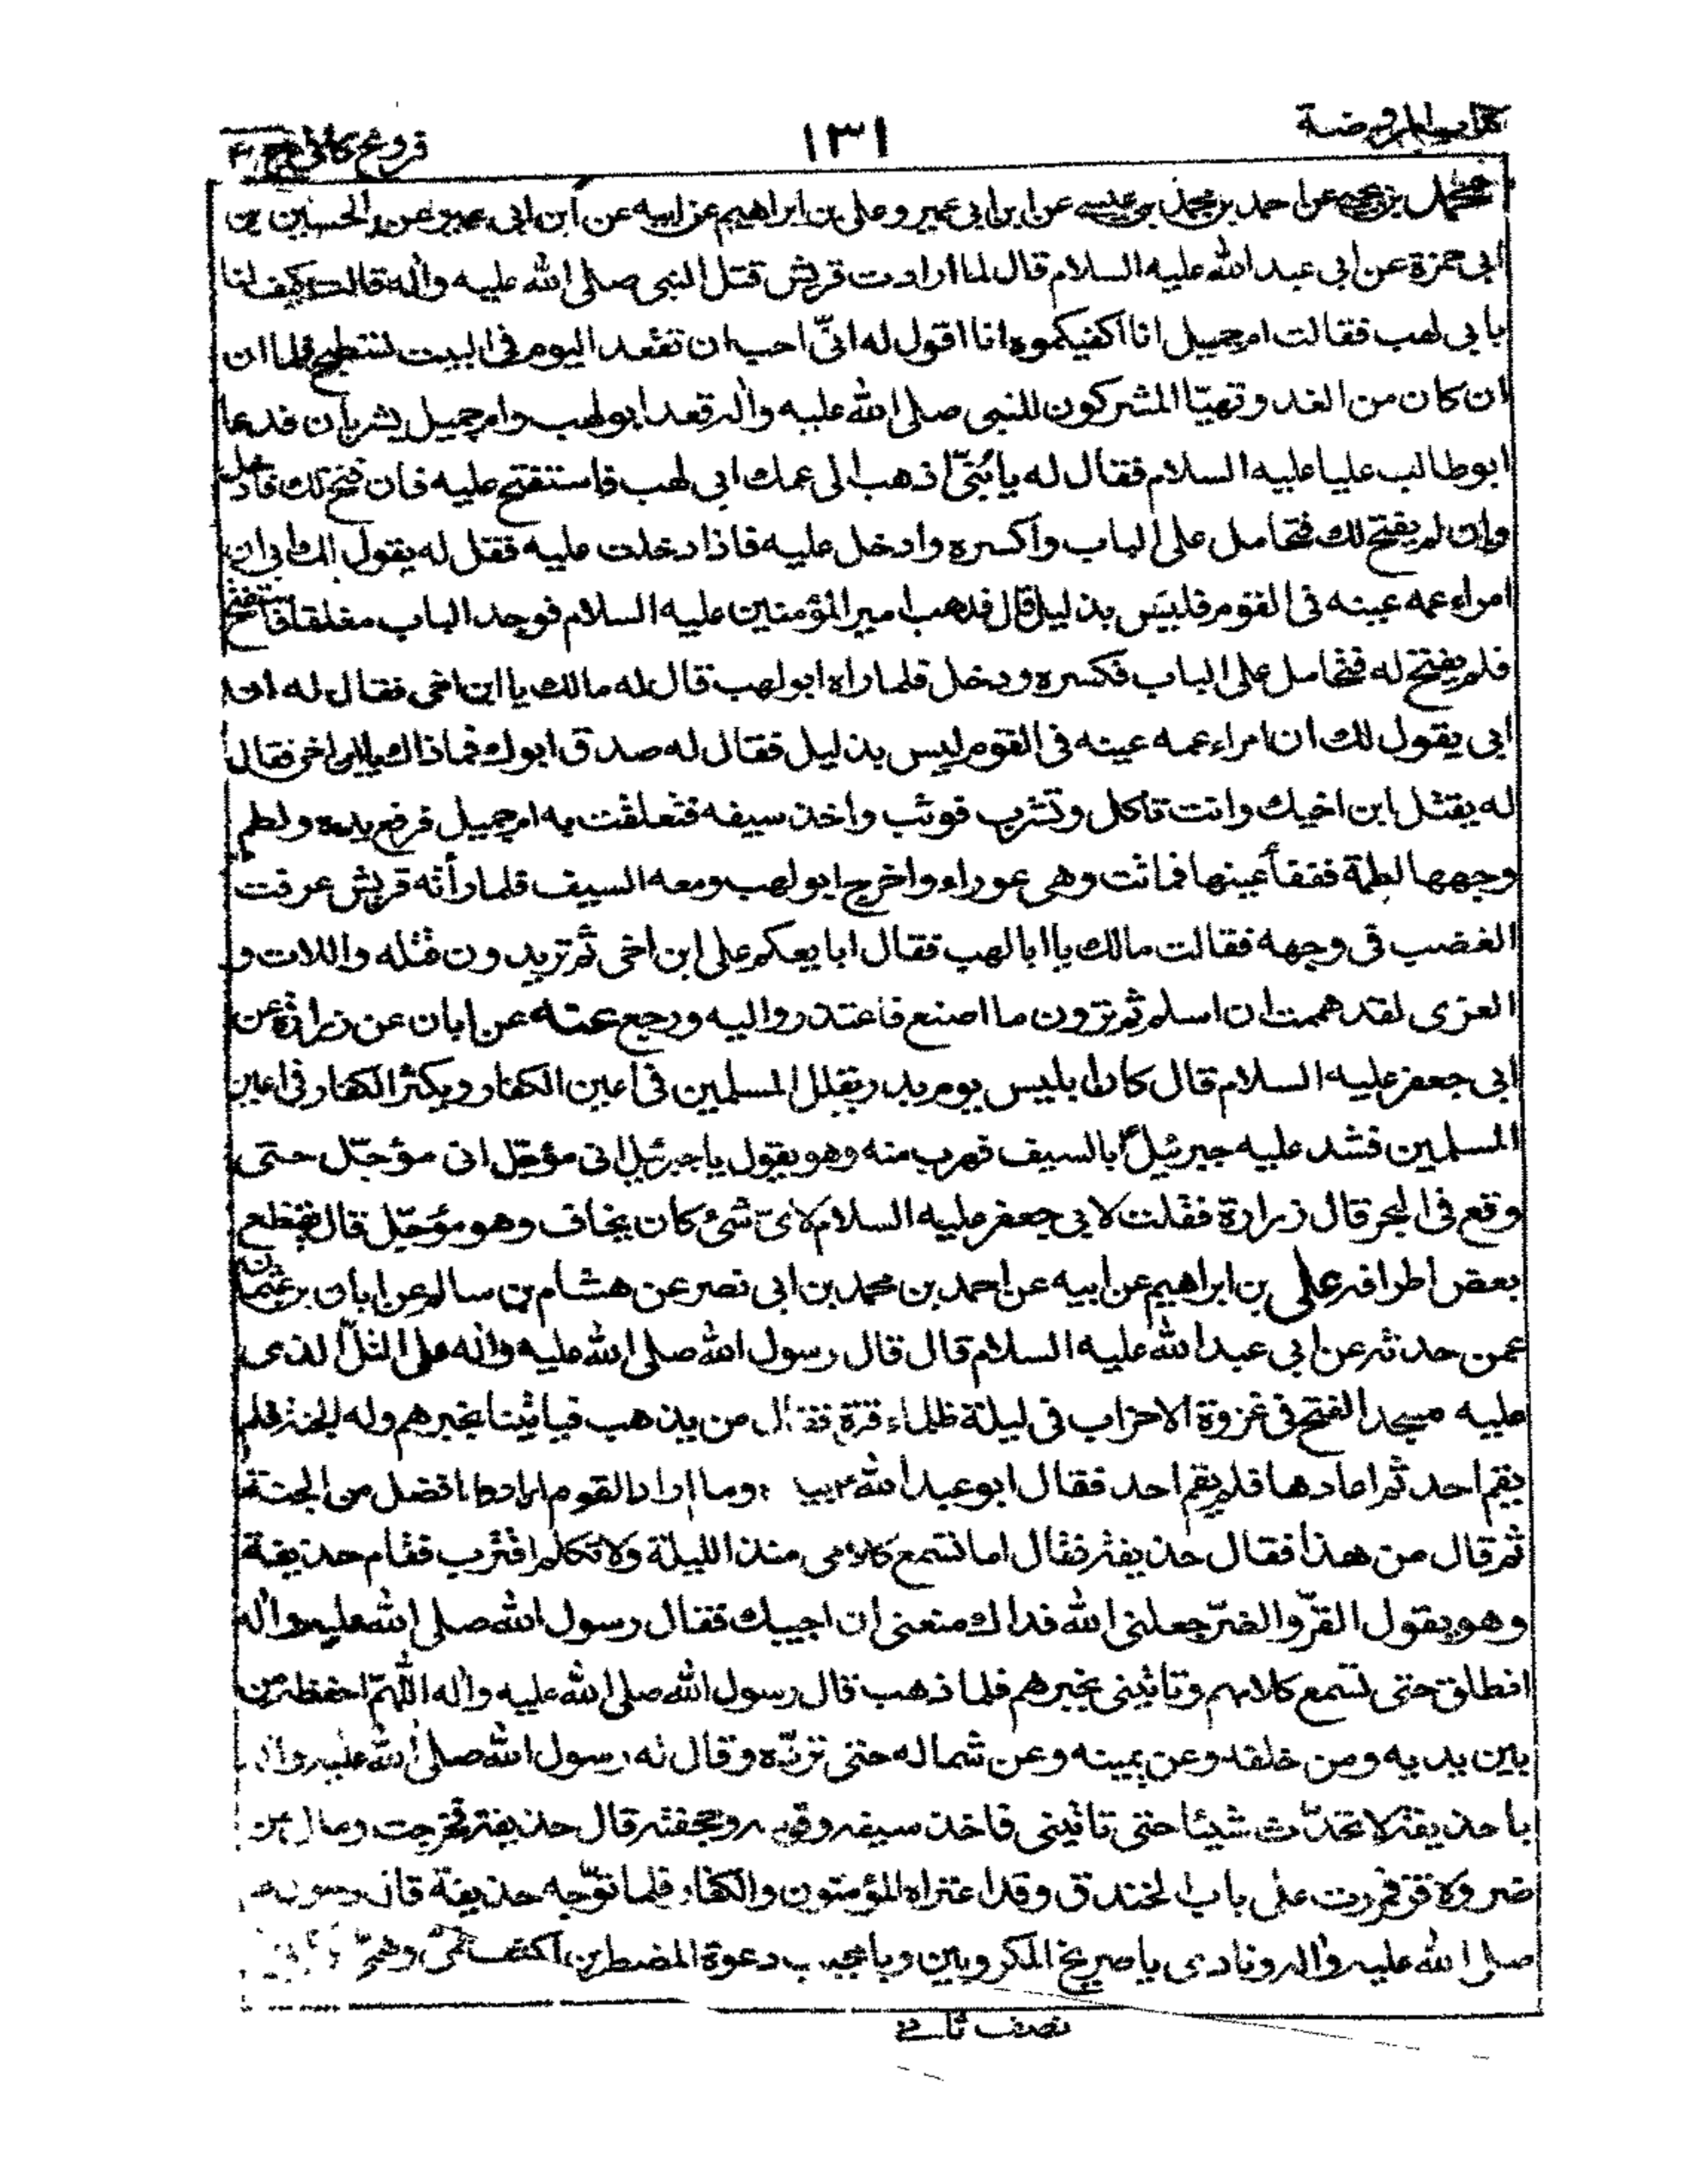 كتاب الروضة
١٣١
فروع كافي ج
محمد بن يحيى عن احمد بن محمد بن عيسى عن ابن ابي عمير و على بن ابراهيم عن ابيه عن ابن ابى عمير عن الحسين بن
ابى حمزة عن ابى عبد الله عليه السلام قال لما ارادت قريش قتل النبى صلى الله عليه واٰله قالت كيف لنا
بابى لهب فقالت ام جميل انا اكفيكموه انا اقول له انّى احب ان تقعد اليوم فى البيت نصطبح فلما ان
ان كان من الغد و تهيّا المشركون للنبى صلى الله عليه واٰله قعد ابو لهب وام جميل يشربان فدعا
ابو طالب عليا عليه السلام فقال له يا بُنىّ اذهب الى عمك ابى لهب فاستفتح عليه فان فتح لك فادخل
وان لم يفتح لك فتحامل على الباب واكسره وادخل عليه فاذا دخلت عليه فقل له يقول لك ابى ان
امراء عمه عينه فى القوم فليس بذليل قال فذهب امير المؤمنين عليه السلام فوجد الباب مغلقا فاستفتح
فلم يفتح له فتحامل على الباب فكسره ودخل فلما راٰه ابو لهب قال له مالك يا ابن اخى فقال له ان
ابى يقول لك ان امراء عمه عينه فى القوم ليس بذليل فقال له صدق ابوك فما ذاك يا ابن اخى فقال
له يقتل ابن اخيك وانت تاكل وتشرب فوثب واخذ سيفه فتعلقت به ام جميل فرفع يده ولطم
وجهها لطمة ففقأ عينها فماتت وهى عوراء واخرج ابو لهب ومعه السيف فلما رأته قريش عرفت
الغضب فى وجهه فقالت مالك يا ابا لهب فقال ابايعكم على ابن اخى ثم تريدون قتله واللات و
العزى لقد هممت ان اسلم ثم ترون ما اصنع فاعتذروا اليه ورجع عنه عن ابان عن زرارة عن
ابى جعفر عليه السلام قال كان ابليس يوم بدر يقلل المسلمين فى اعين الكفار ويكثر الكفار فى اعين
المسلمين فشد عليه جبرئيل بالسيف فهرب منه وهو يقول يا جبرئيل انى مؤجّل انى مؤجّل حتى
وقع فى البحر قال زرارة فقلت لابى جعفر عليه السلام لاىّ شىء كان يخاف وهو مؤجّل قال يقطع
بعض اطرافه على بن ابراهيم عن ابيه عن احمد بن محمد بن ابى نصر عن هشام بن سالم عن ابان بن عثمان
عمن حدثه عن ابى عبد الله عليه السلام قال قال رسول الله صلى الله عليه واٰله على التلّ الذى
عليه مسجد الفتح فى غزوة الاحزاب فى ليلة ظلماء قرّة فقال من يذهب فيأتينا بخبرهم وله الجنة فلم
يقم احد ثم اعادها فلم يقم احد فقال ابو عبد الله بيده وما اراد القوم ارادوا افضل من الجنة
ثم قال من هذا فقال حذيفة فقال اما تسمع كلامى منذ الليلة ولا تكلم اقترب فقام حذيفة
وهو يقول القرّ والضرّ جعلنى الله فداك منعنى ان اجيبك فقال رسول الله صلى الله عليه واٰله
انطلق حتى تسمع كلامهم وتأتينى بخبرهم فلما ذهب قال رسول الله صلى الله عليه واٰله اللهمّ احفظه من
بين يديه ومن خلفه وعن يمينه وعن شماله حتى تردّه وقال له رسول الله صلى الله عليه واٰله
يا حذيفة لا تحدّث شيئا حتى تأتينى فاخذ سيفه وقوسه وحجفته قال حذيفة فخرجت وما بى من
ضر ولا قرّ فمررت على باب الخندق وقد اعتراه المؤمنون والكفار فلما توجّه حذيفة قام رسول الله
صلى الله عليه واٰله ونادى يا صريخ المكروبين ويا مجيب دعوة المضطرين اكشف همّى وغمّى
نصف ثانى